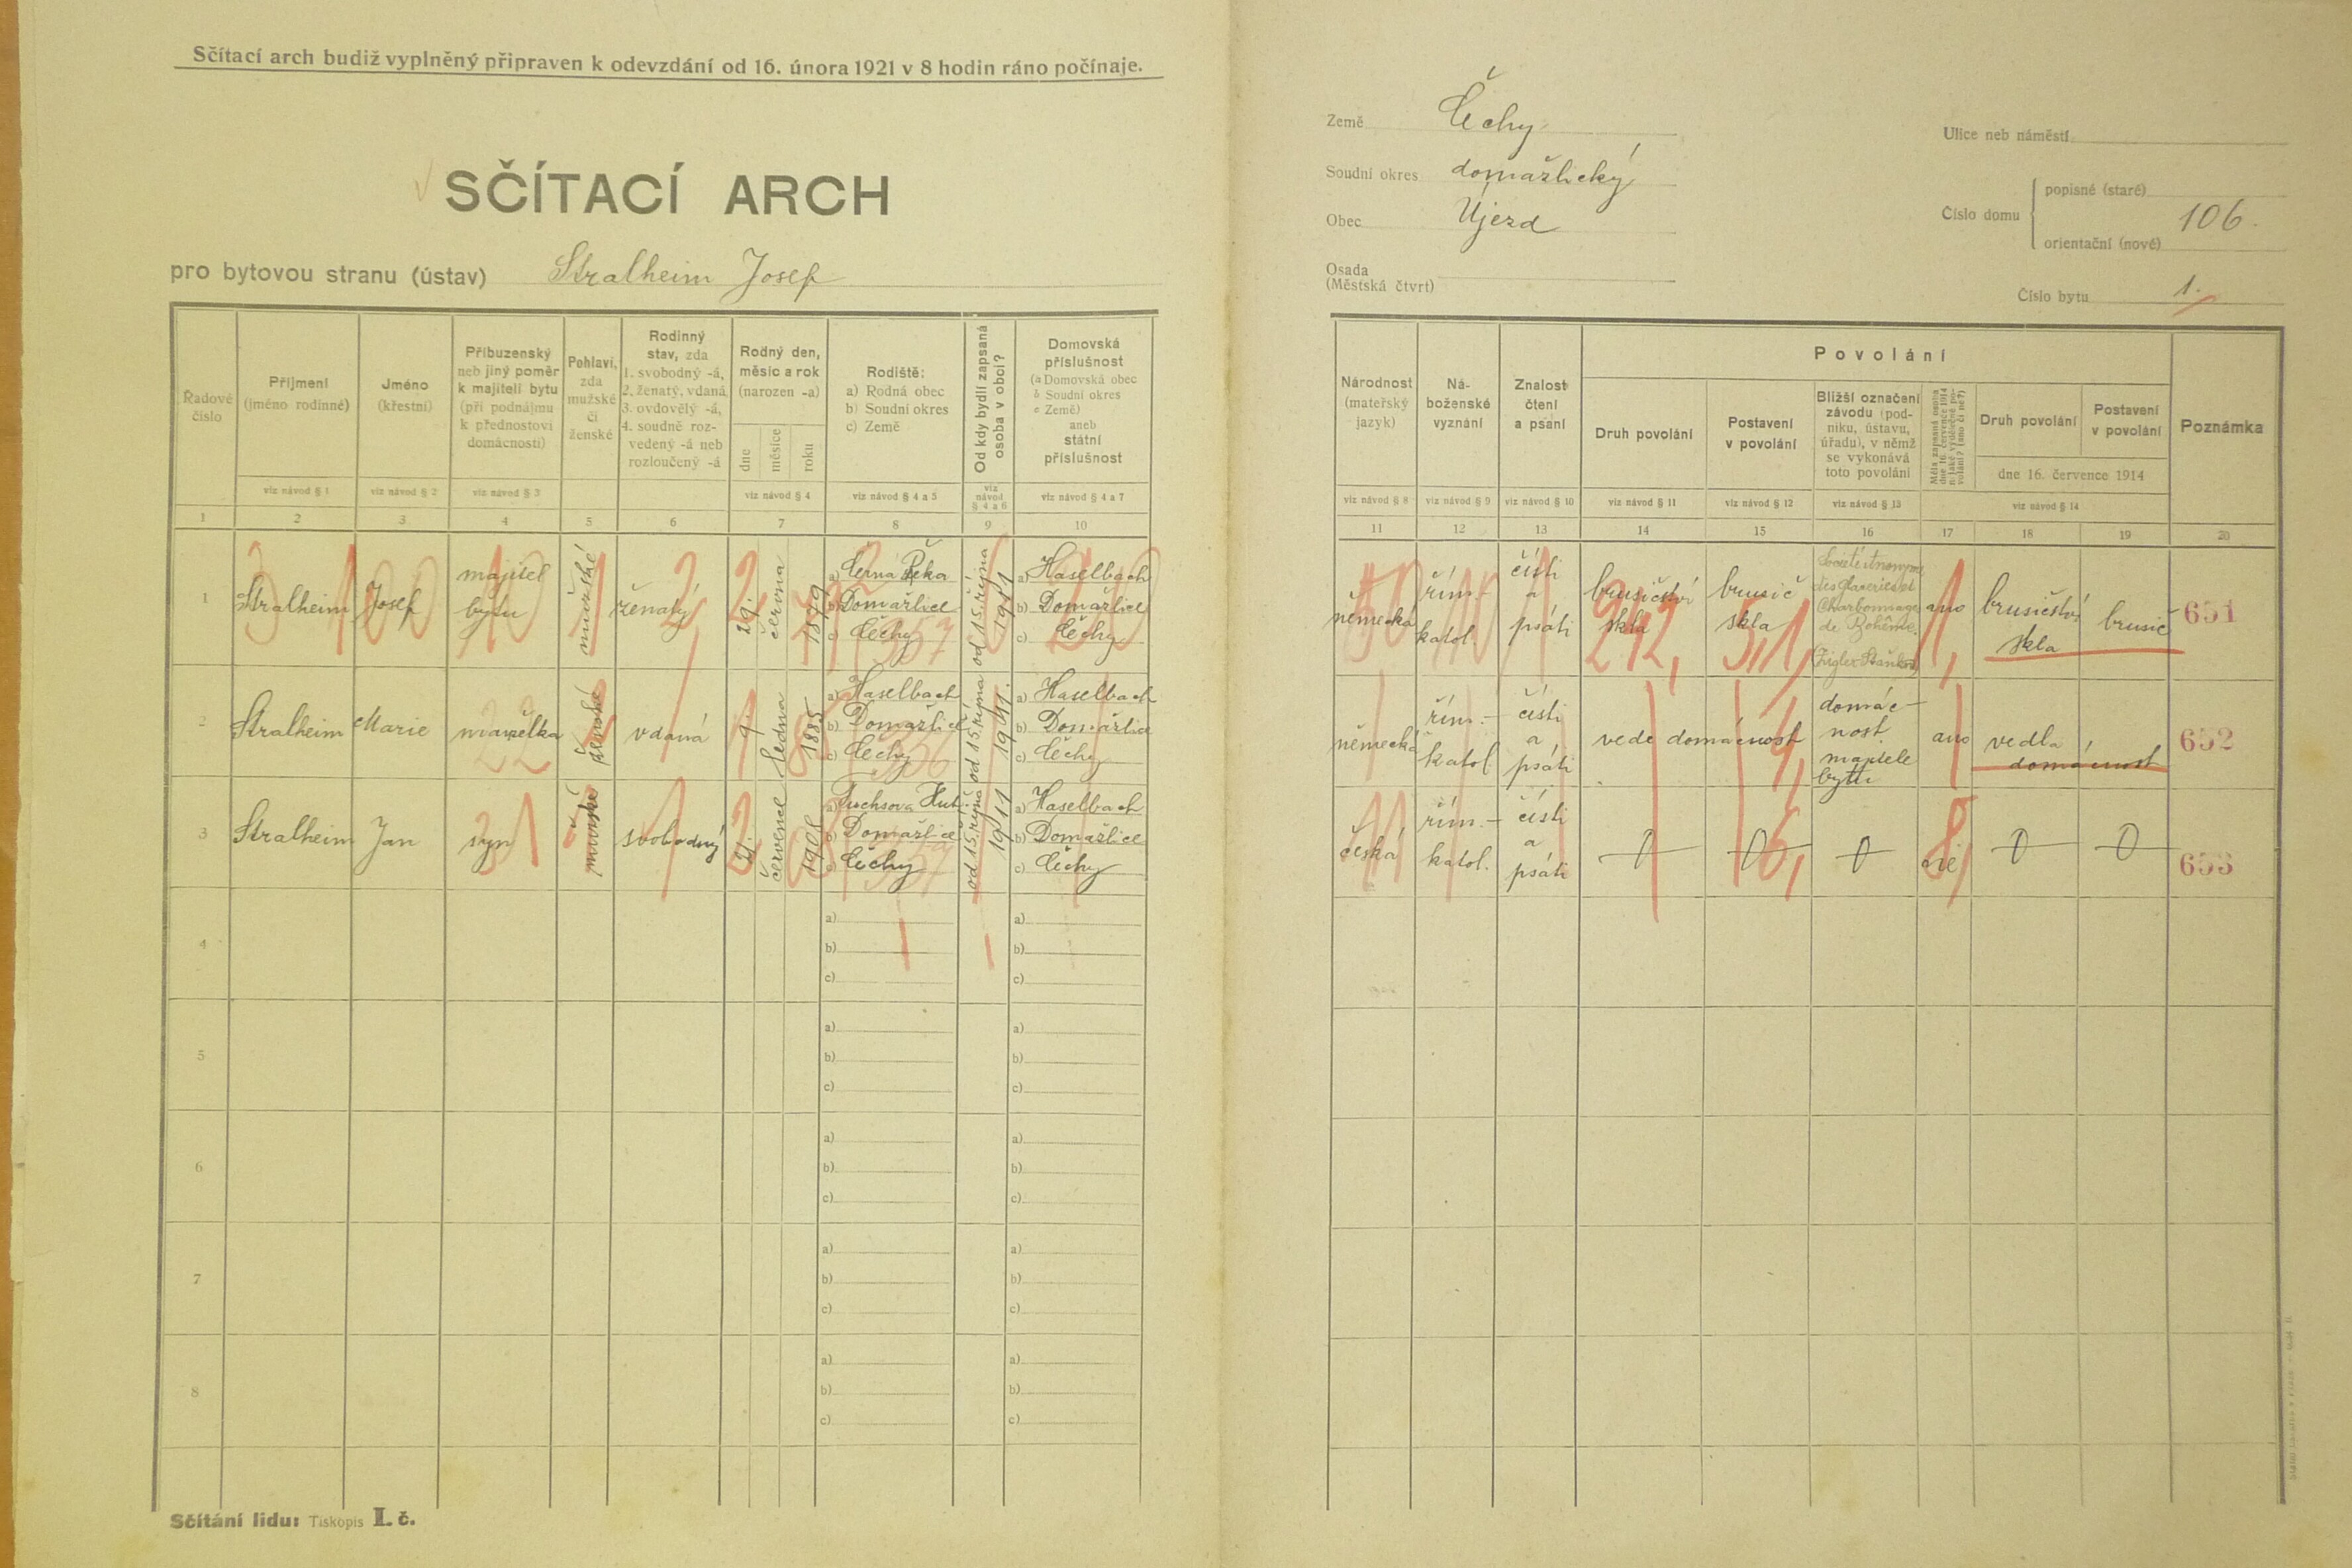 Sčítací arch budiž vyplněný připraven k odevzdání od 16. února 1921 v 8 hodin ráno počínaje.
SČÍTACÍ ARCH
pro bytovou stranu (ústav) Stralheim Josef
Země Čechy
Soudní okres domažlický
Obec Újezd
Osada
(Městská čtvrt)
Ulice neb náměstí
Číslo domu
popisné (staré)
106.
orientační (nové)
Číslo bytu 1.
Řadové
číslo
Příjmení
(jméno rodinné)
Jméno
(křestní)
Příbuzenský
neb jiný poměr
k majiteli bytu
(při podnájmu
k přednostovi
domácnosti)
Pohlaví,
zda
mužské
či
ženské
Rodinný
stav, zda
1. svobodný -á,
2. ženatý, vdaná,
3. ovdovělý -á,
4. soudně roz-
vedený -á neb
rozloučený -á
Rodný den,
měsíc a rok
(narozen -a)
dne
měsíce
roku
Rodiště:
a) Rodná obec
b) Soudní okres
c) Země
Od kdy bydlí zapsaná
osoba v obci?
Domovská
příslušnost
(a Domovská obec
b Soudní okres
c Země)
aneb
státní
příslušnost
viz návod § 1
viz návod § 2
viz návod § 3
viz návod § 4
viz návod § 4 a 5
viz
návod
§ 4 a 6
viz návod § 4 a 7
1 2 3 4 5 6 7 8 9 10
Národnost
(mateřský
jazyk)
Ná-
boženské
vyznání
Znalost
čtení
a psaní
Povolání
Druh povolání
Postavení
v povolání
Bližší označení
závodu (pod-
niku, ústavu,
úřadu), v němž
se vykonává
toto povolání
Druh povolání
Postavení
v povolání
dne 16. července 1914
Poznámka
viz návod § 8
viz návod § 9
viz návod § 10
viz návod § 11
viz návod § 12
viz návod § 13
viz návod § 14
11 12 13 14 15 16 17 18 19 20
1
Stralheim
Josef
majitel
bytu
mužské
ženatý
29.
června
1879
a) Černá Řeka
b) Domažlice
c) Čechy
od 15. října
1911
a) Haselbach
b) Domažlice
c) Čechy
německá
řím.-
katol.
čísti
a
psáti
brusičství
skla
brusič
skla
des Glaceries et
Charbonnages
de Bohême.
ano
brusičství
skla
brusič
651
2
Stralheim
Marie
manželka
ženské
vdaná
9.
ledna
1885
a) Haselbach
b) Domažlice
c) Čechy
od 15. října
1911.
a) Haselbach
b) Domažlice
c) Čechy
německá
řím.-
katol.
čísti
a
psáti
vede domácnost
domác-
nost
majitele
bytu
ano
vedla
domácnost
652
3
Stralheim
Jan
syn
mužské
svobodný
21.
července
1908
a) Fuchsova Huť
b) Domažlice
c) Čechy
od 15. října
1911
a) Haselbach
b) Domažlice
c) Čechy
česká
řím.-
katol.
čísti
a
psáti
0 0 0
ne
0 0
653
4
a) a)
b) b)
c) c)
5
a) a)
b) b)
c) c)
6
a) a)
b) b)
c) c)
7
a) a)
b) b)
c) c)
8
a) a)
b) b)
c) c)
Sčítání lidu: Tiskopis I. č.